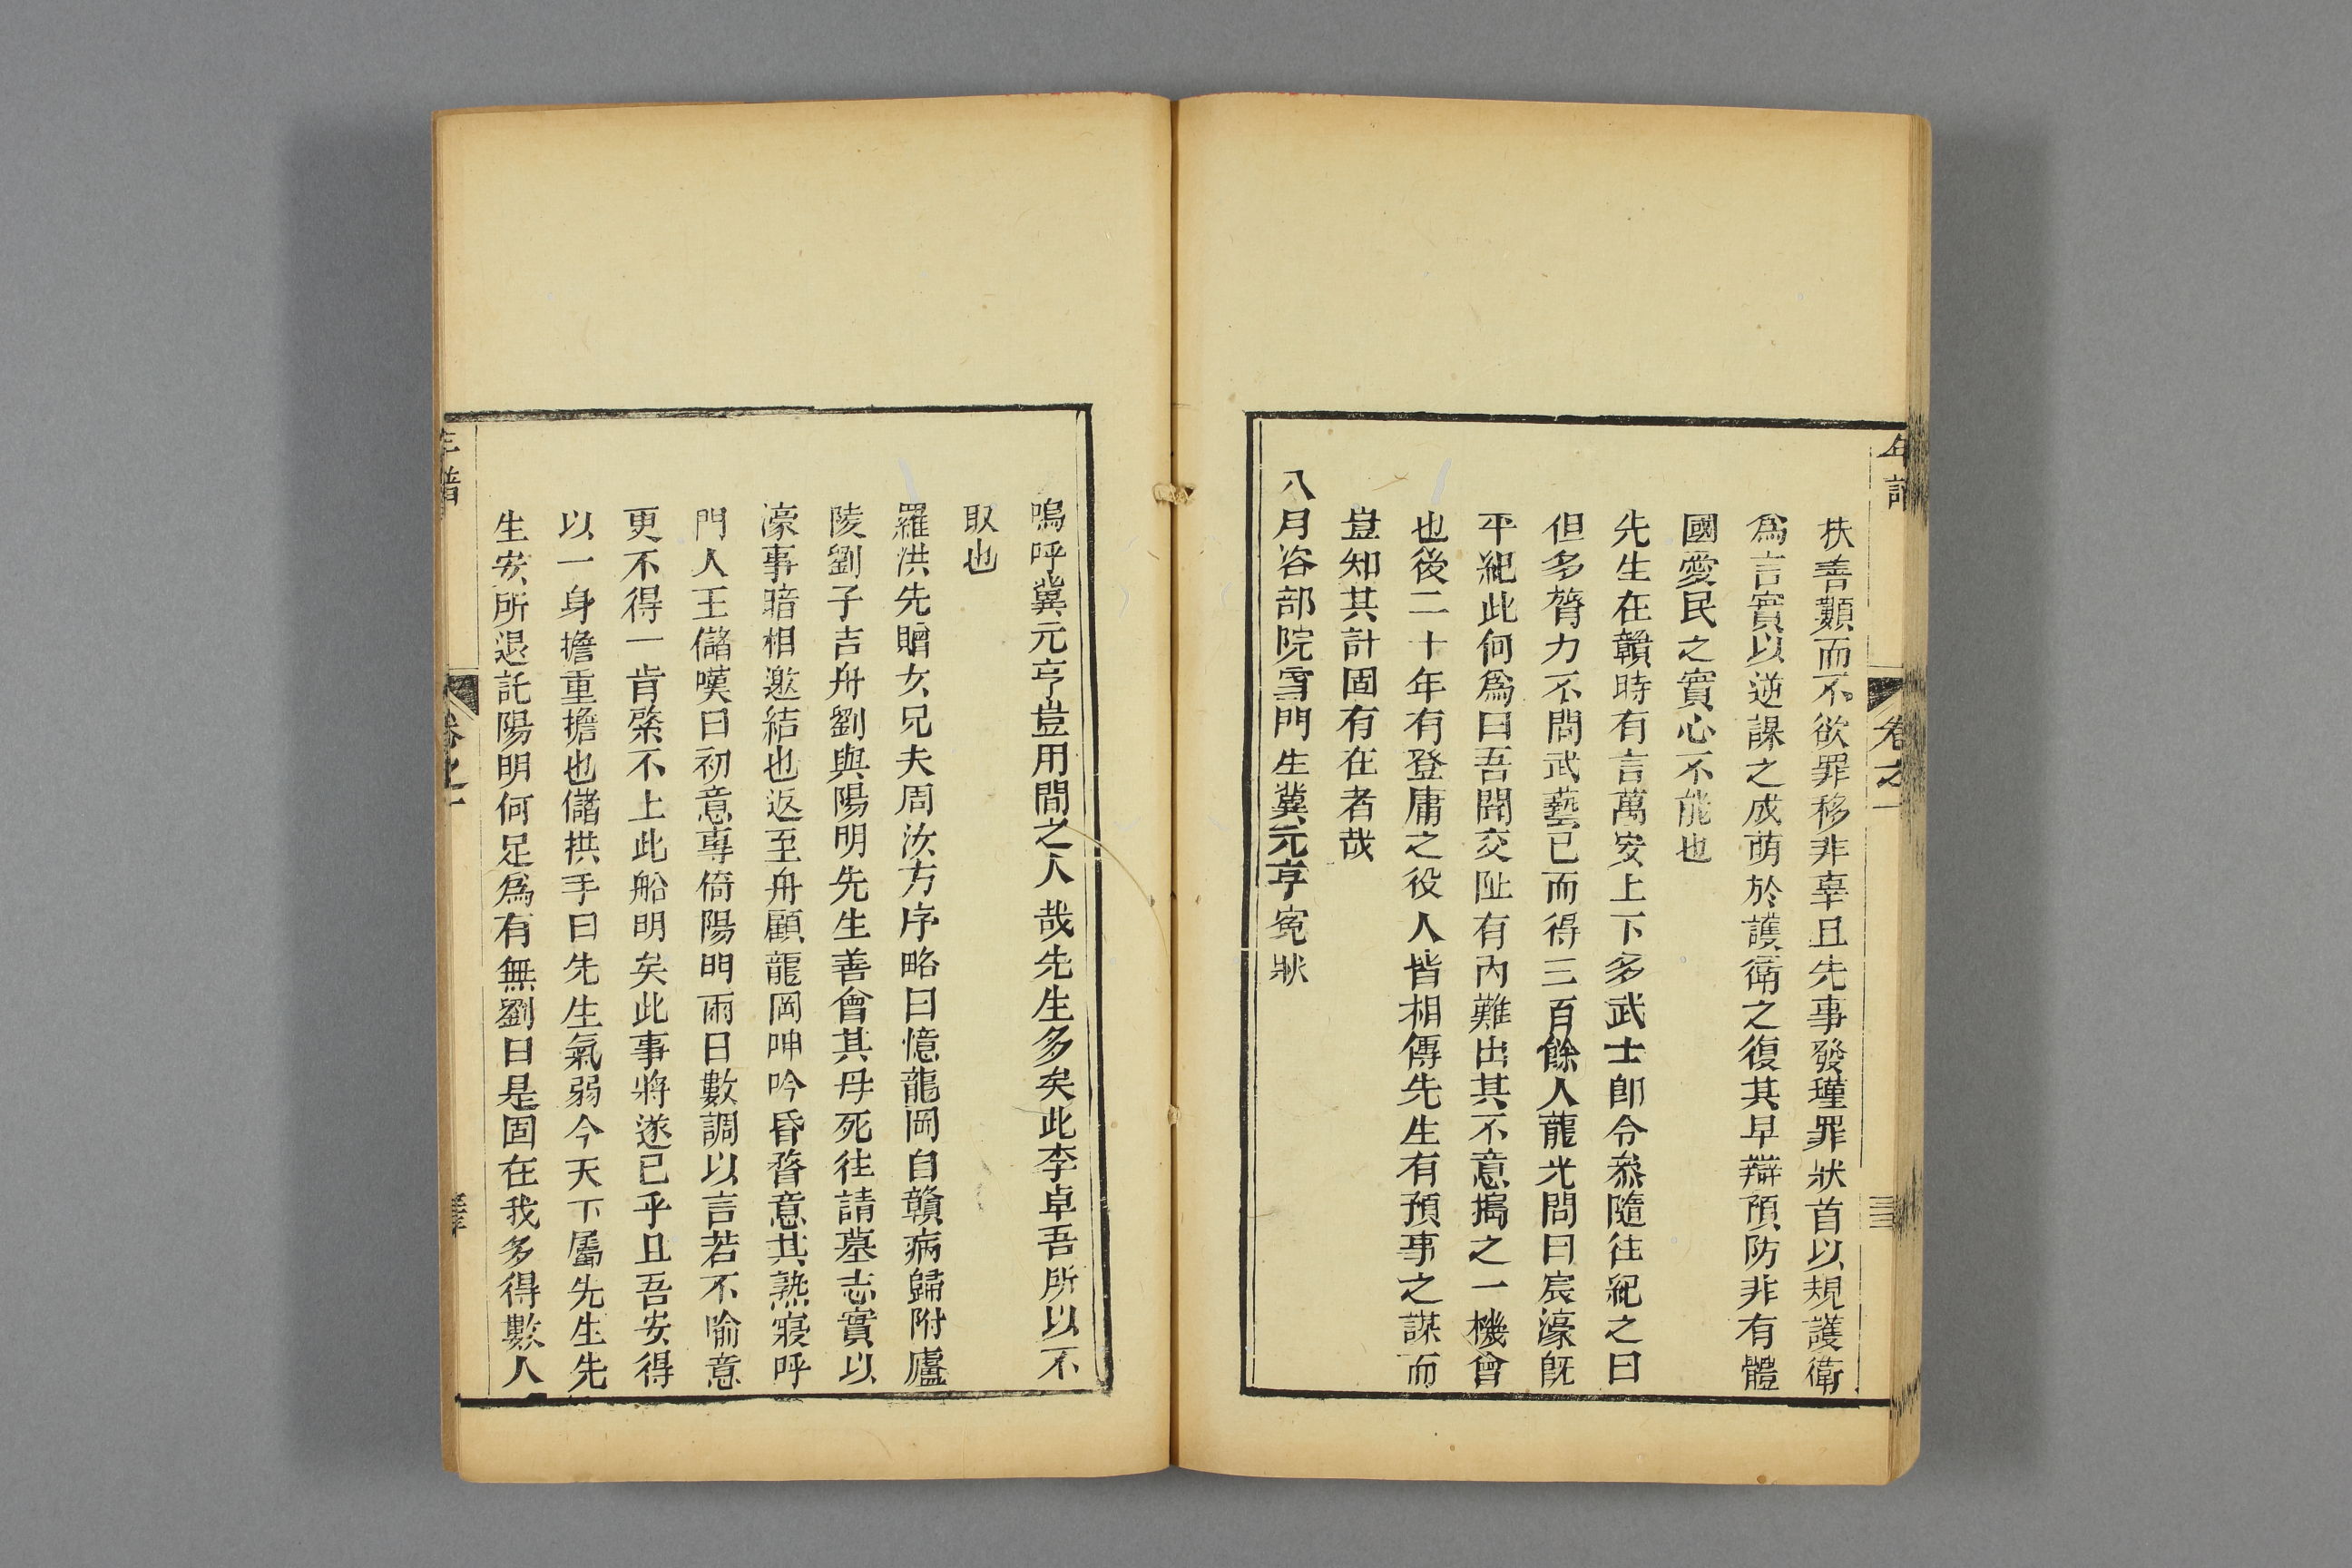 年譜 卷之一
扶善類而不欲罪移非辜且先事發瑾罪狀首以規護衛
爲言實以逆謀之成萌於護衛之復其早辯預防非有體
國愛民之實心不能也
先生在贛時有言萬安上下多武士卽令叅隨往紀之曰
但多膂力不問武藝已而得三百餘人龍光問曰宸濠旣
平紀此何爲曰吾聞交阯有內難出其不意搗之一機會
也後二十年有登庸之役人皆相傳先生有預事之謀而
豈知其計固有在者哉
八月咨部院雪門生冀元亨寃狀
嗚呼冀元亨豈用間之人哉先生多矣此李卓吾所以不
取也
羅洪先贈女兄夫周汝方序略曰憶龍岡自贛病歸附廬
陵劉子吉舟劉與陽明先生善會其母死往請墓志實以
濠事暗相邀結也返至舟顧龍岡呻吟昏瞀意其熟寢呼
門人王儲嘆曰初意專倚陽明兩日數調以言若不喻意
更不得一肯綮不上此船明矣此事將遂已乎且吾安得
以一身擔重擔也儲拱手曰先生氣弱今天下屬先生先
生安所退託陽明何足爲有無劉曰是固在我多得數人
年譜 卷之一